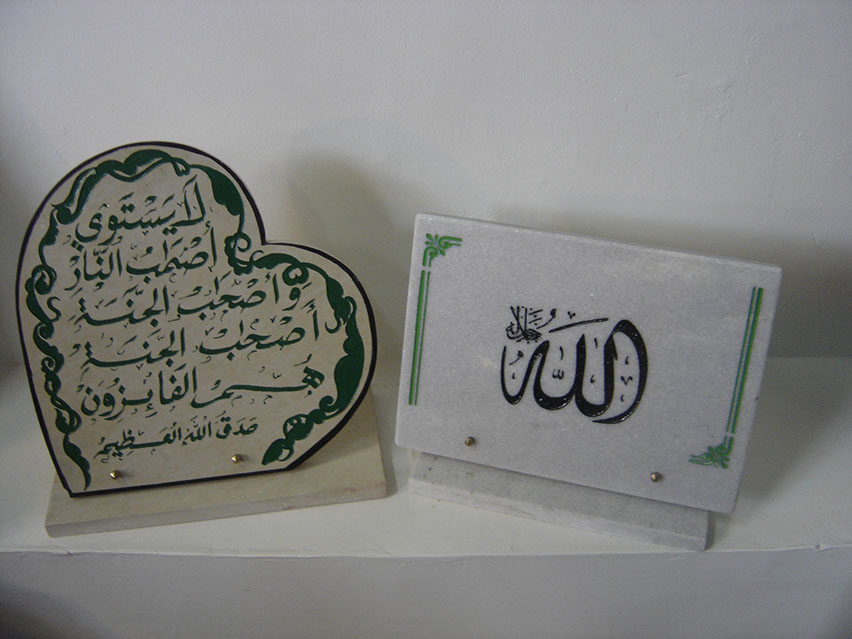 لَا يَسْتَوِي
أَصْحَابُ النَّارِ
وَأَصْحَابُ الْجَنَّةِ
أَصْحَابُ الْجَنَّةِ
هُمُ الْفَائِزُونَ
صَدَقَ اللهُ الْعَظِيمُ
الله
جل جلاله